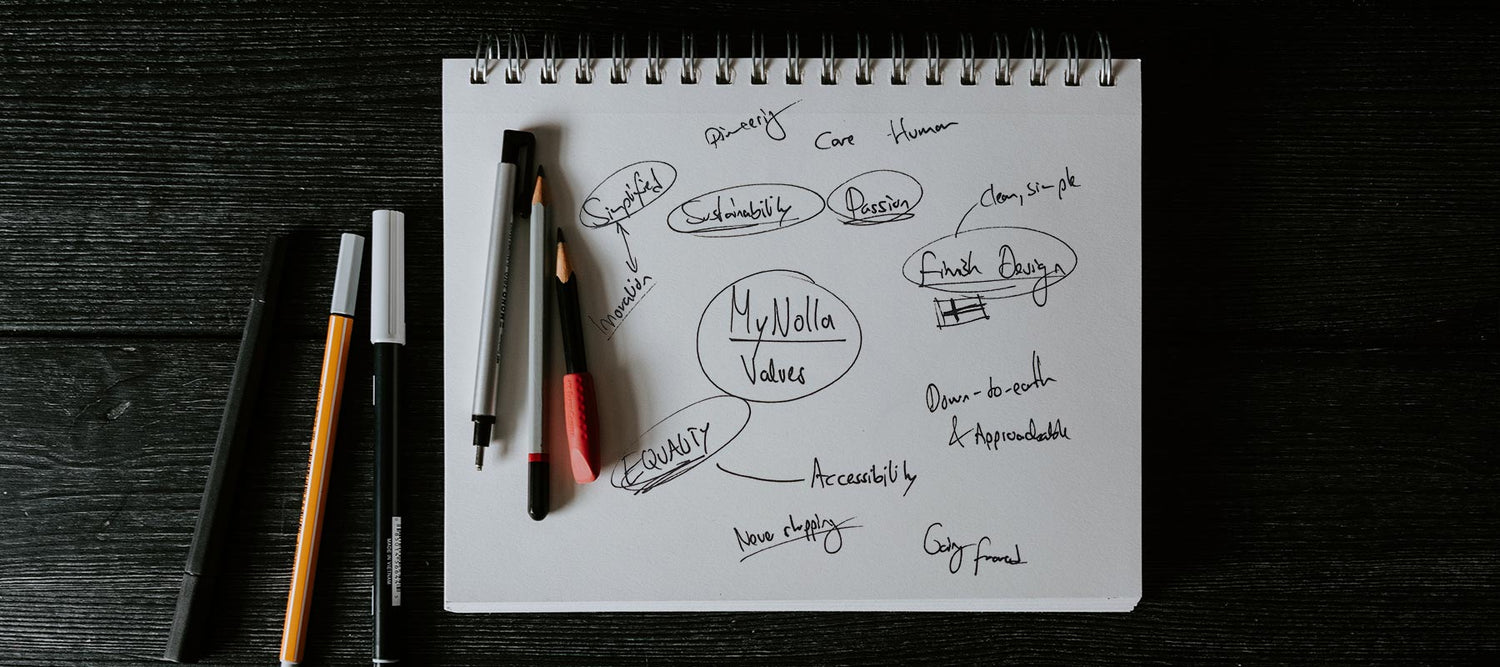 Care Human
Simplified
Sustainability
Passion
Clean, simple
Finish Design
Inovation
MyNolla
Values
Down-to-earth
& Approachable
EQUALITY
Accessibility
Never stopping
Going forward
MADE IN VIETNAM